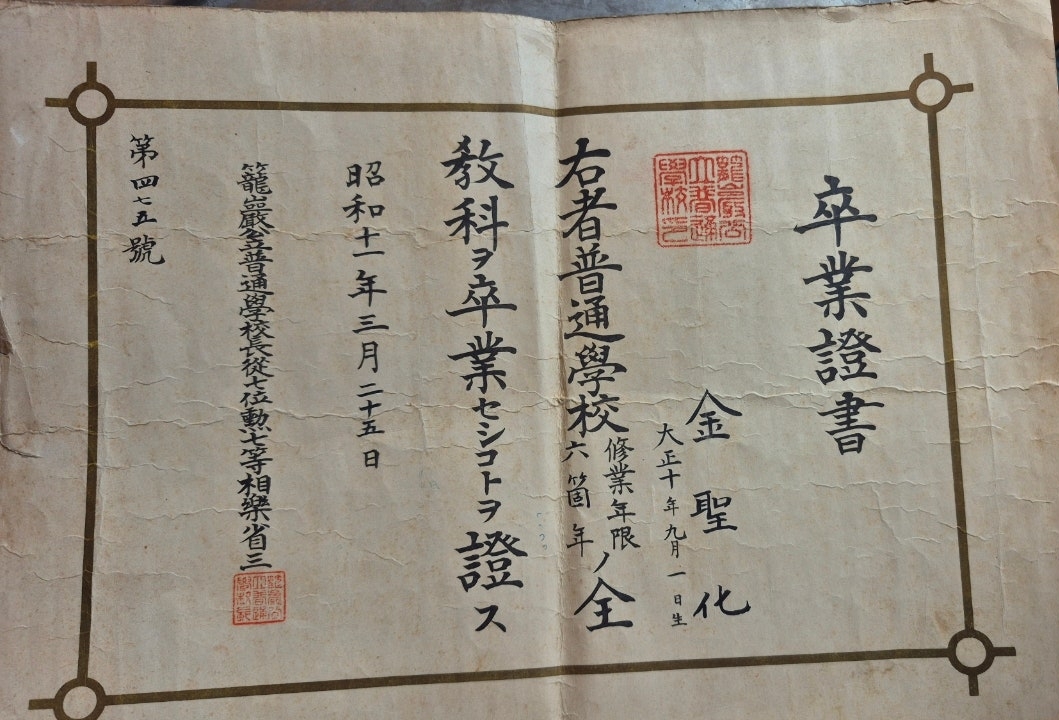 卒業證書
金聖化
大正十年九月一日生
右者普通學校修業年限六箇年ノ全
教科ヲ卒業セシコトヲ證ス
昭和十一年三月二十五日
籠巖公立普通學校長從七位勳七等相樂省三
第四七五號
籠巖公立普通學校印